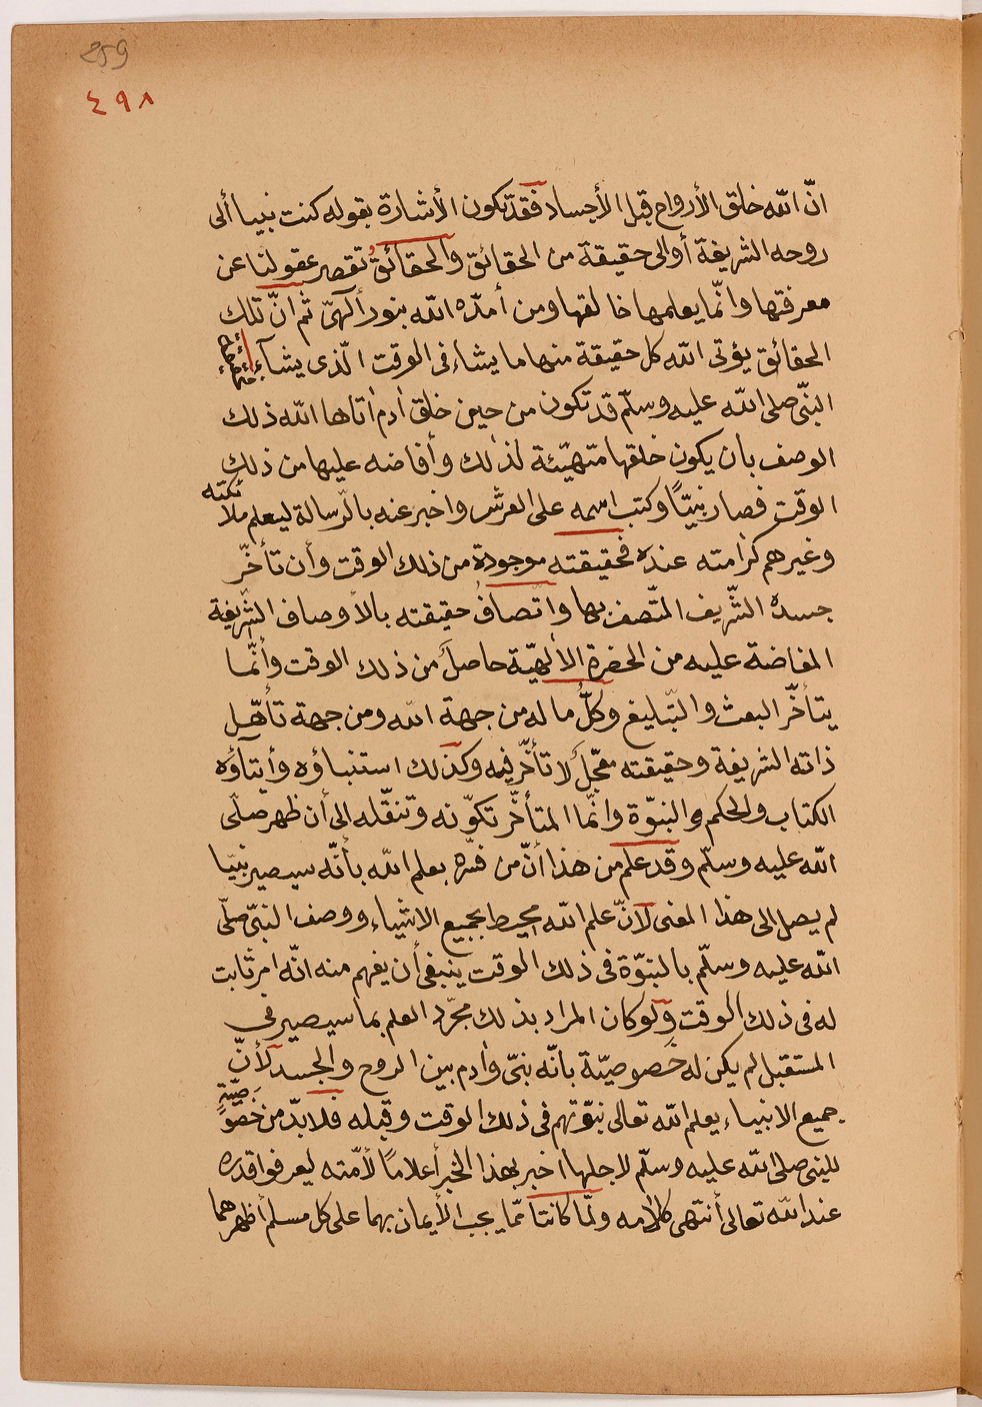 259
٤٩٨
انّ الله خلق الأرواح قبل الأجساد فقد تكون الأشارة بقوله كنت نبيا ألى
روحه الشريفة أو الى حقيقة من الحقائق والحقائقُ تقصر عقولنا عن
معرفتها وانّما يعلمها خالقها ومن أمدّه الله بنور ألهىّ ثم انّ تلك
الحقائق يؤتى الله كل حقيقة منها ما يشاء فى الوقت الّذى يشآء
النبّى صلى الله عليه وسلّم قد تكون من حين خلق أدم أتاها الله ذلك
الوصف بان يكون خلقها متهيّئة لذلك وأفاضه عليها من ذلك
الوقت فصار نبيّاً وكتب اسمه على العرش واخبر عنه بالرّسالة ليعلم ملائكته
وغيرهم كرامته عنده فحقيقته موجودة من ذلك الوقت وأن تأخّر
جسده الشّريف المتّصف بها واتّصافُ حقيقته بالأوصاف الشّريفة
المفاضة عليه من الحضرة الألهيّة حاصلَ من ذلك الوقت وأنّما
يتأخّر البعث والتّبليغ وكلُّ ما له من جهة الله ومن جهة تأهّل
ذاته الشريفة وحقيقته معّجلَ لا تأخّر فيه وكذلك استنباؤه وأيتآؤه
الكتاب والحكم والنبوّة وانّما المتأخّر تكوّنه وتنقّله الى أن ظهر صلّى
الله عليه وسلّم وقد علم من هذا أنّ من فسّره بعلم الله بأنّه سيصير نبيّا
لم يصل الى هذا المعنى لانّ علم الله محيط بجميع الاشياء ووصف النبىّ صلّى
الله عليه وسلّم بالنبوّة فى ذلك الوقت ينبغى أن يفهم منه انّه امر ثابت
له فى ذلك الوقت ولو كان المراد بذلك مجرّد العلم بما سيصير فى
المستقبل لم يكن له خصوصيّة بانّه نبىّ وأدم بين الروح والجسد لأنّ
جميع الانبياء يعلم الله تعالى نبوّتهم فى ذلك الوقت وقبله فلا بدّ من خصوصيّة
للنبى صلى الله عليه وسلّم لاجلها اخبر بهذا الخبر أعلاماً لأمّته ليعرفوا قدره
عند الله تعالى أنتهى كلامه ولمّا كانتا ممّا يجب الأيمان بهما على كل مسلم أظهرهما